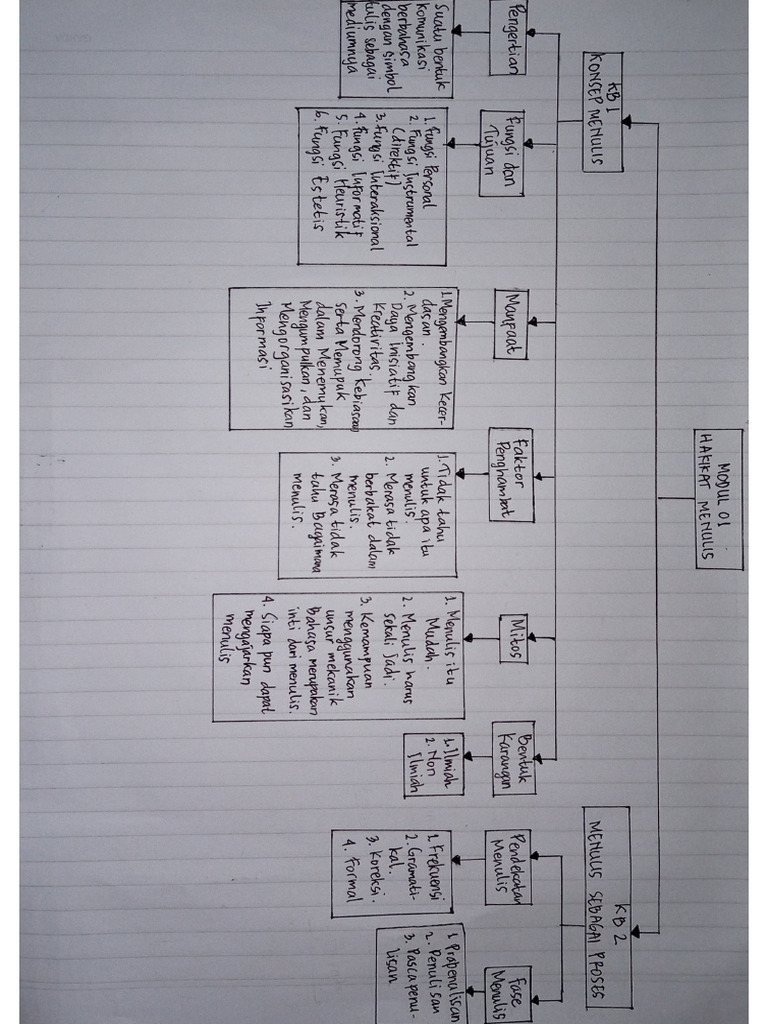 MODUL 01
HAKIKAT MENULIS
KB 1
KONSEP MENULIS
Pengertian
Suatu bentuk
komunikasi
berbahasa
dengan simbol
tulis sebagai
mediumnya
Fungsi dan
Tujuan
1. Fungsi Personal
2. Fungsi Instrumental
(direktif)
3. Fungsi Interaksional
4. Fungsi Informatif
5. Fungsi Heuristik
6. Fungsi Estetis
Manfaat
1. Mengembangkan Kecer-
dasan.
2. Mengembangkan
Daya Inisiatif dan
Kreativitas.
3. Mendorong Kebiasaan
serta Memupuk
dalam Menemukan,
Mengumpulkan, dan
Mengorganisasikan
Informasi
Faktor
Penghambat
1. Tidak tahu
untuk apa itu
menulis.
2. Merasa tidak
berbakat dalam
menulis.
3. Merasa tidak
tahu Bagaimana
menulis.
Mitos
1. Menulis itu
Mudah.
2. Menulis harus
sekali Jadi.
3. Kemampuan
menggunakan
unsur mekanik
Bahasa merupakan
inti dari menulis.
4. Siapa pun dapat
mengajarkan
menulis
Bentuk
Karangan
1. Ilmiah
2. Non
Ilmiah
KB 2
MENULIS SEBAGAI PROSES
Pendekatan
Menulis
1. Frekuensi
2. Gramati-
kal.
3. Koreksi.
4. Formal
Fase
Menulis
1. Prapenulisan
2. Penulisan
3. Pasca penu-
lisan